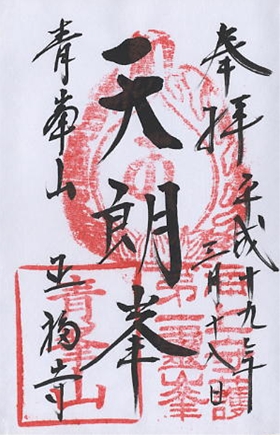 奉拝
平成十九年
三月十八日
第一霊峯
天朗峯
青峯山
正福寺
青峯山